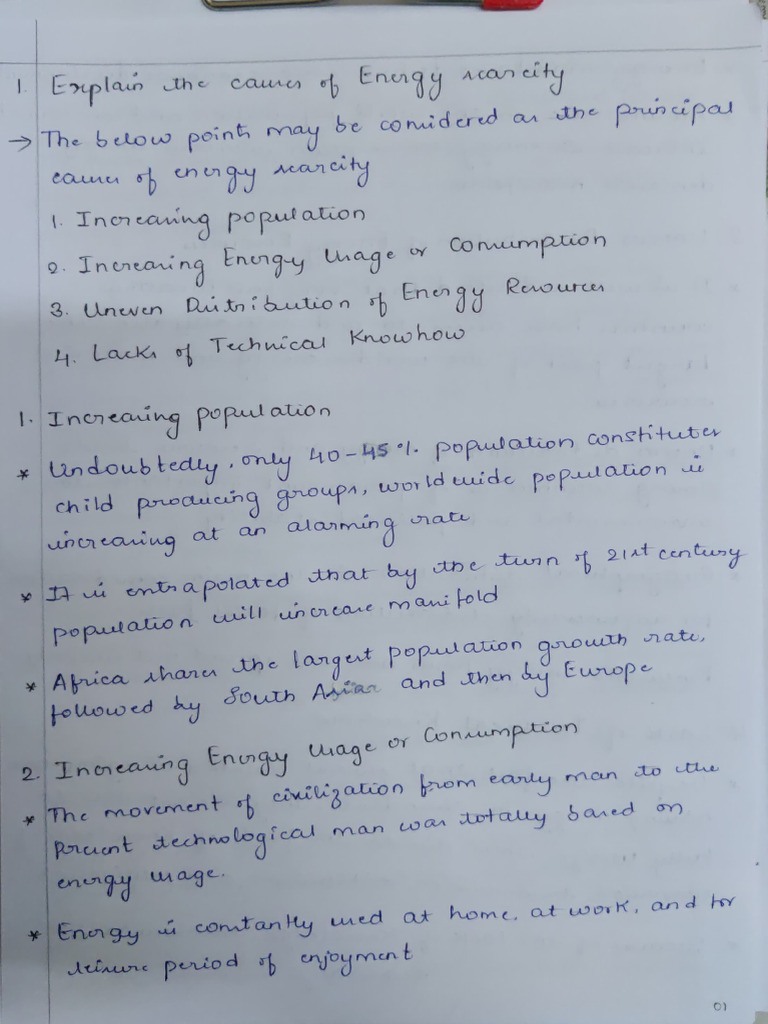 1. Explain the causes of Energy scarcity
→ The below points may be considered as the principal
causes of energy scarcity
1. Increasing population
2. Increasing Energy Usage or Consumption
3. Uneven Distribution of Energy Resources
4. Lacks of Technical Knowhow
1. Increasing population
* Undoubtedly, only 40-45% population constitutes
child producing groups, world wide population is
increasing at an alarming rate
* It is extrapolated that by the turn of 21st century
population will increase manifold
* Africa shares the largest population growth rate,
followed by South Asias and then by Europe
2. Increasing Energy Usage or Consumption
* The movement of civilization from early man to the
present technological man was totally based on
energy usage.
* Energy is constantly used at home, at work, and for
leisure period of enjoyment
01